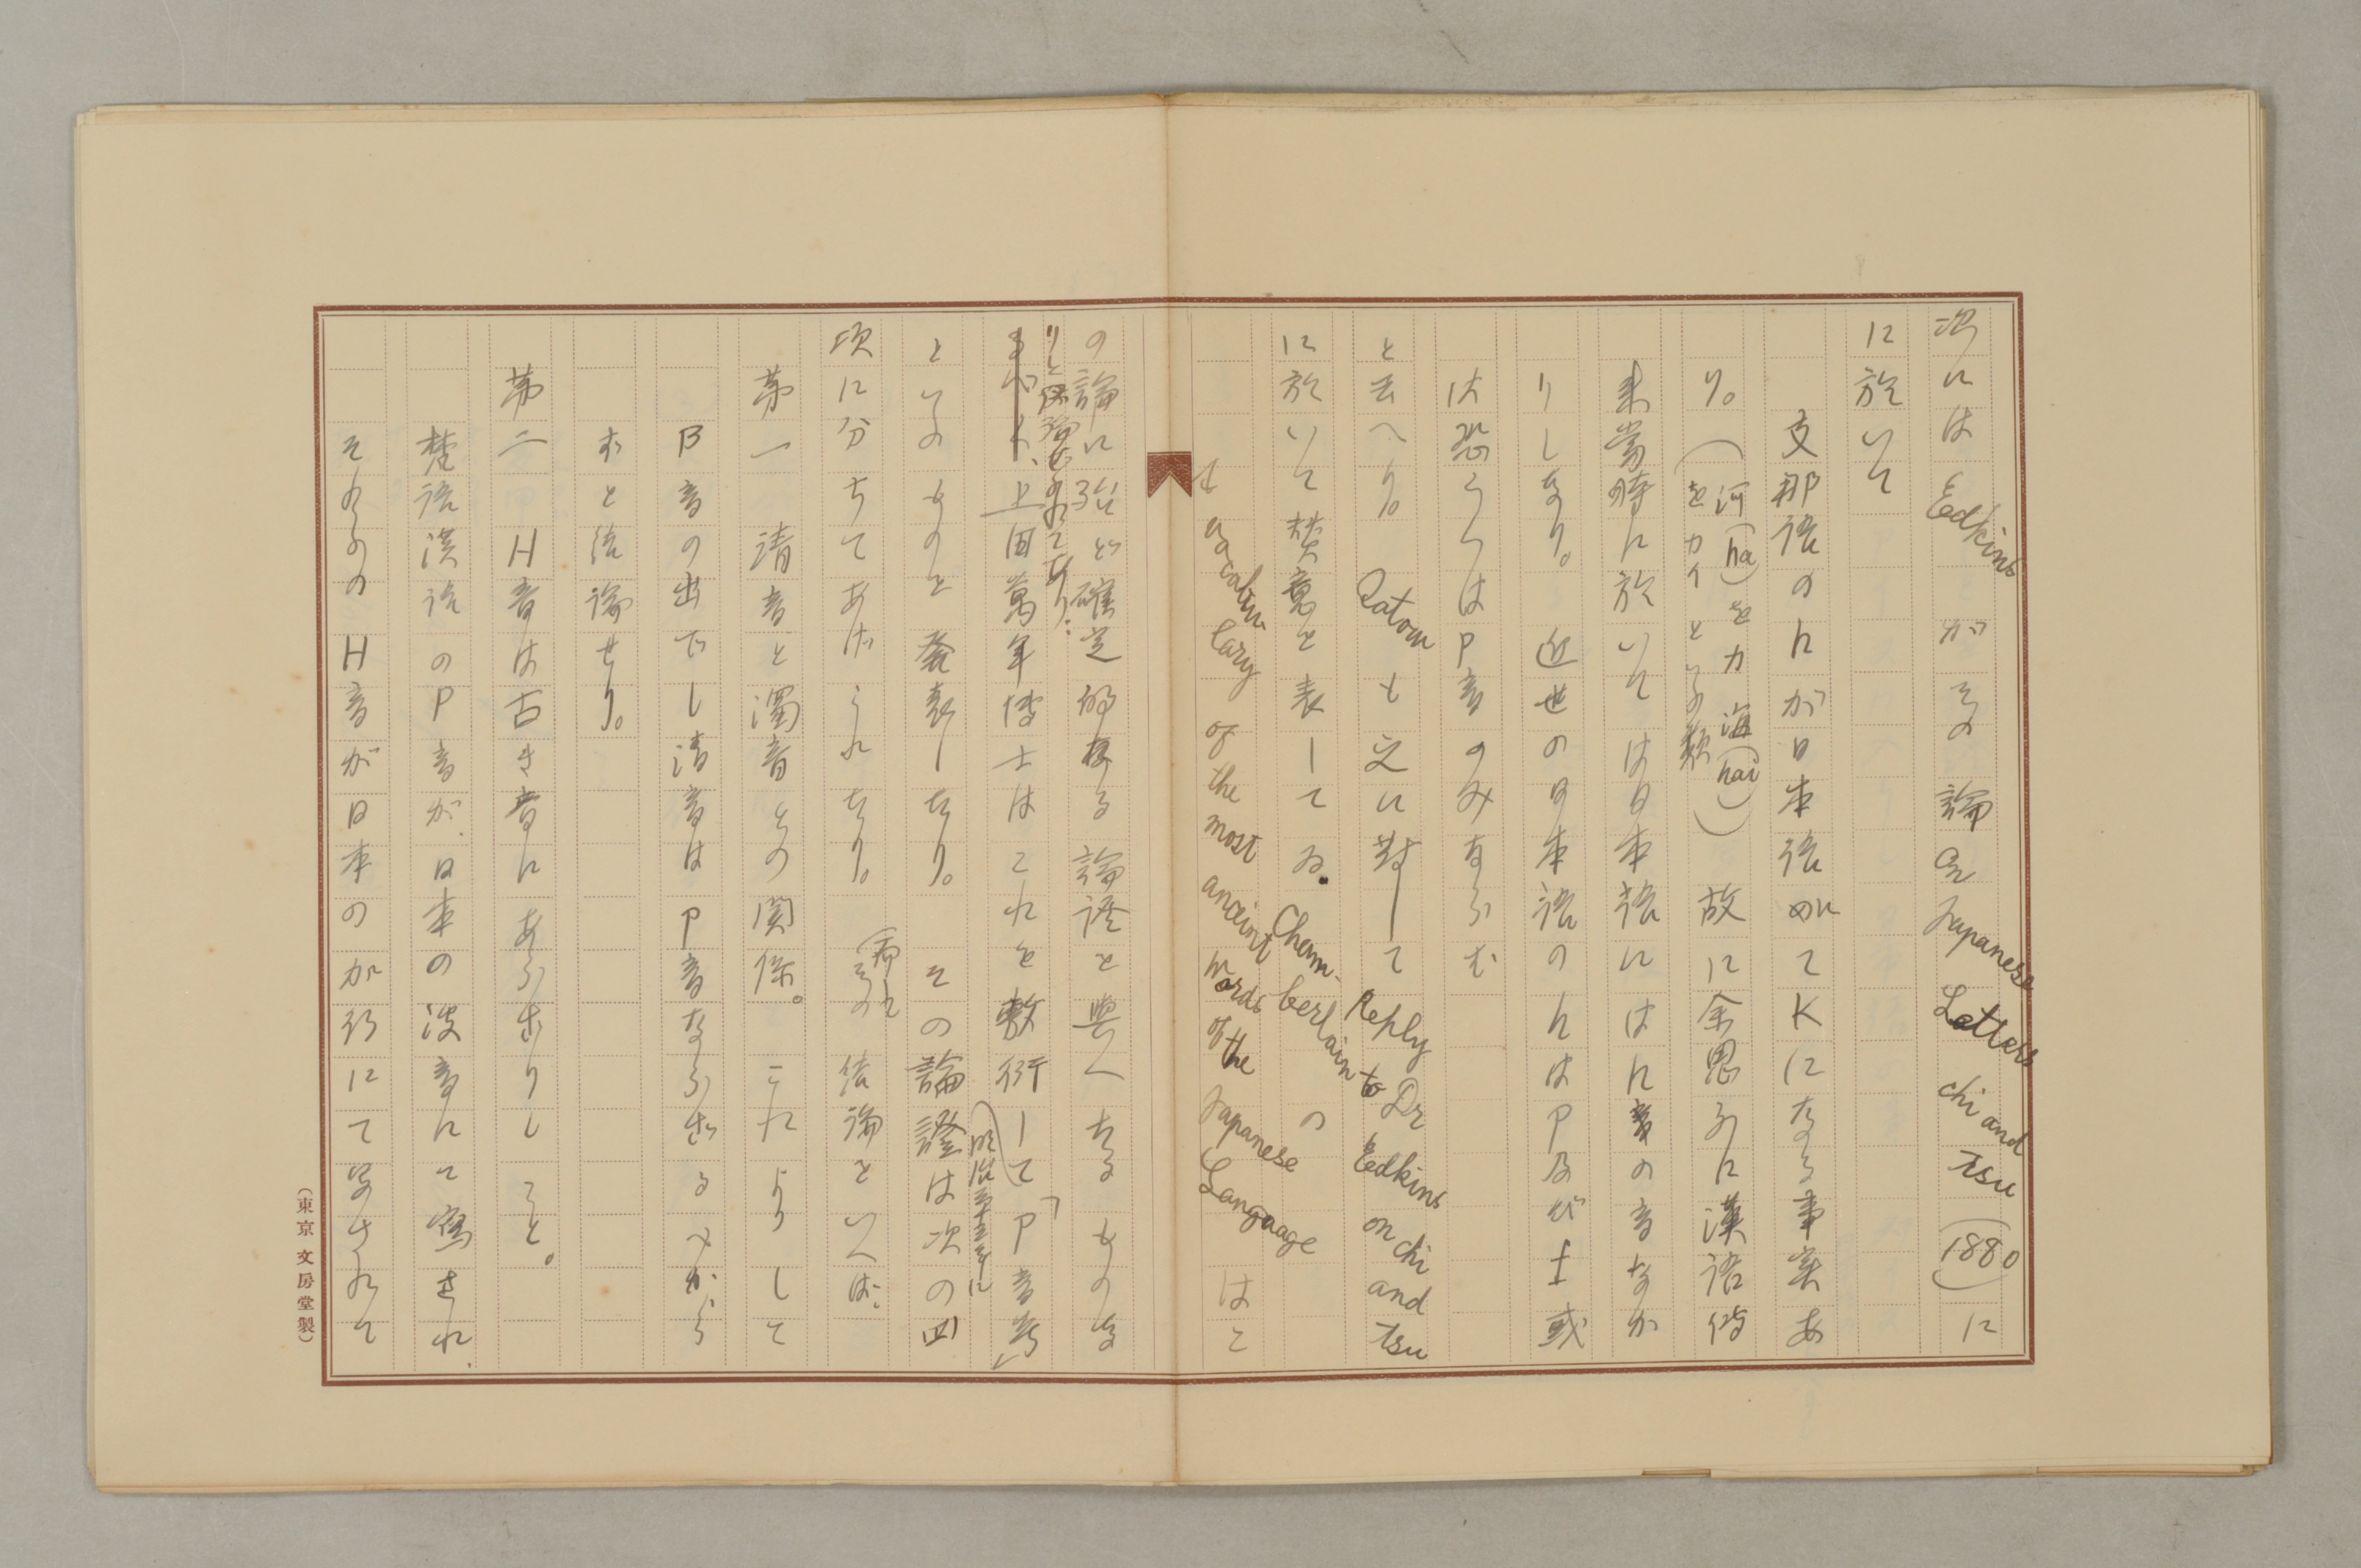 次には Edkins がその論文 Japanese Letters chi and Tsu (1880) に
に於いて
支那語のhが日本語にてKになる事実あ
り。(河(ha)をカ 海(hai)
をカイという類) 故に余思ふに漢語傳
来当時に於いては日本語にはh音の音なか
りしなり。 近世の日本語のhはP及びf或
は恐らくはP音のみならむ
と云へり。 Satow も之に対して Reply to Dr Edkins on chi and Tsu
に於いて賛意を表してゐる。 Chamberlain の
a vocabulary of the most ancient words of the Japanese Language はこ
の論に殆ど確定的なる論証を與へたるものな
上田萬年博士はこれを敷衍して「P音考」
(明治三十一年に
といふものを発表したり。 その論證は次の四
項に分ちてあげられたり。 結論をいへば、
第一 清音と濁音との関係。 これよりして
B音の出でし清音はP音ならざるべから
ずと結論せり。
第二 H音は古き音にあらざりしこと。
梵語漢語のP音が、日本の波音にて寫され、
それらのH音が日本のか行にて写されて
(東京 文房堂製)